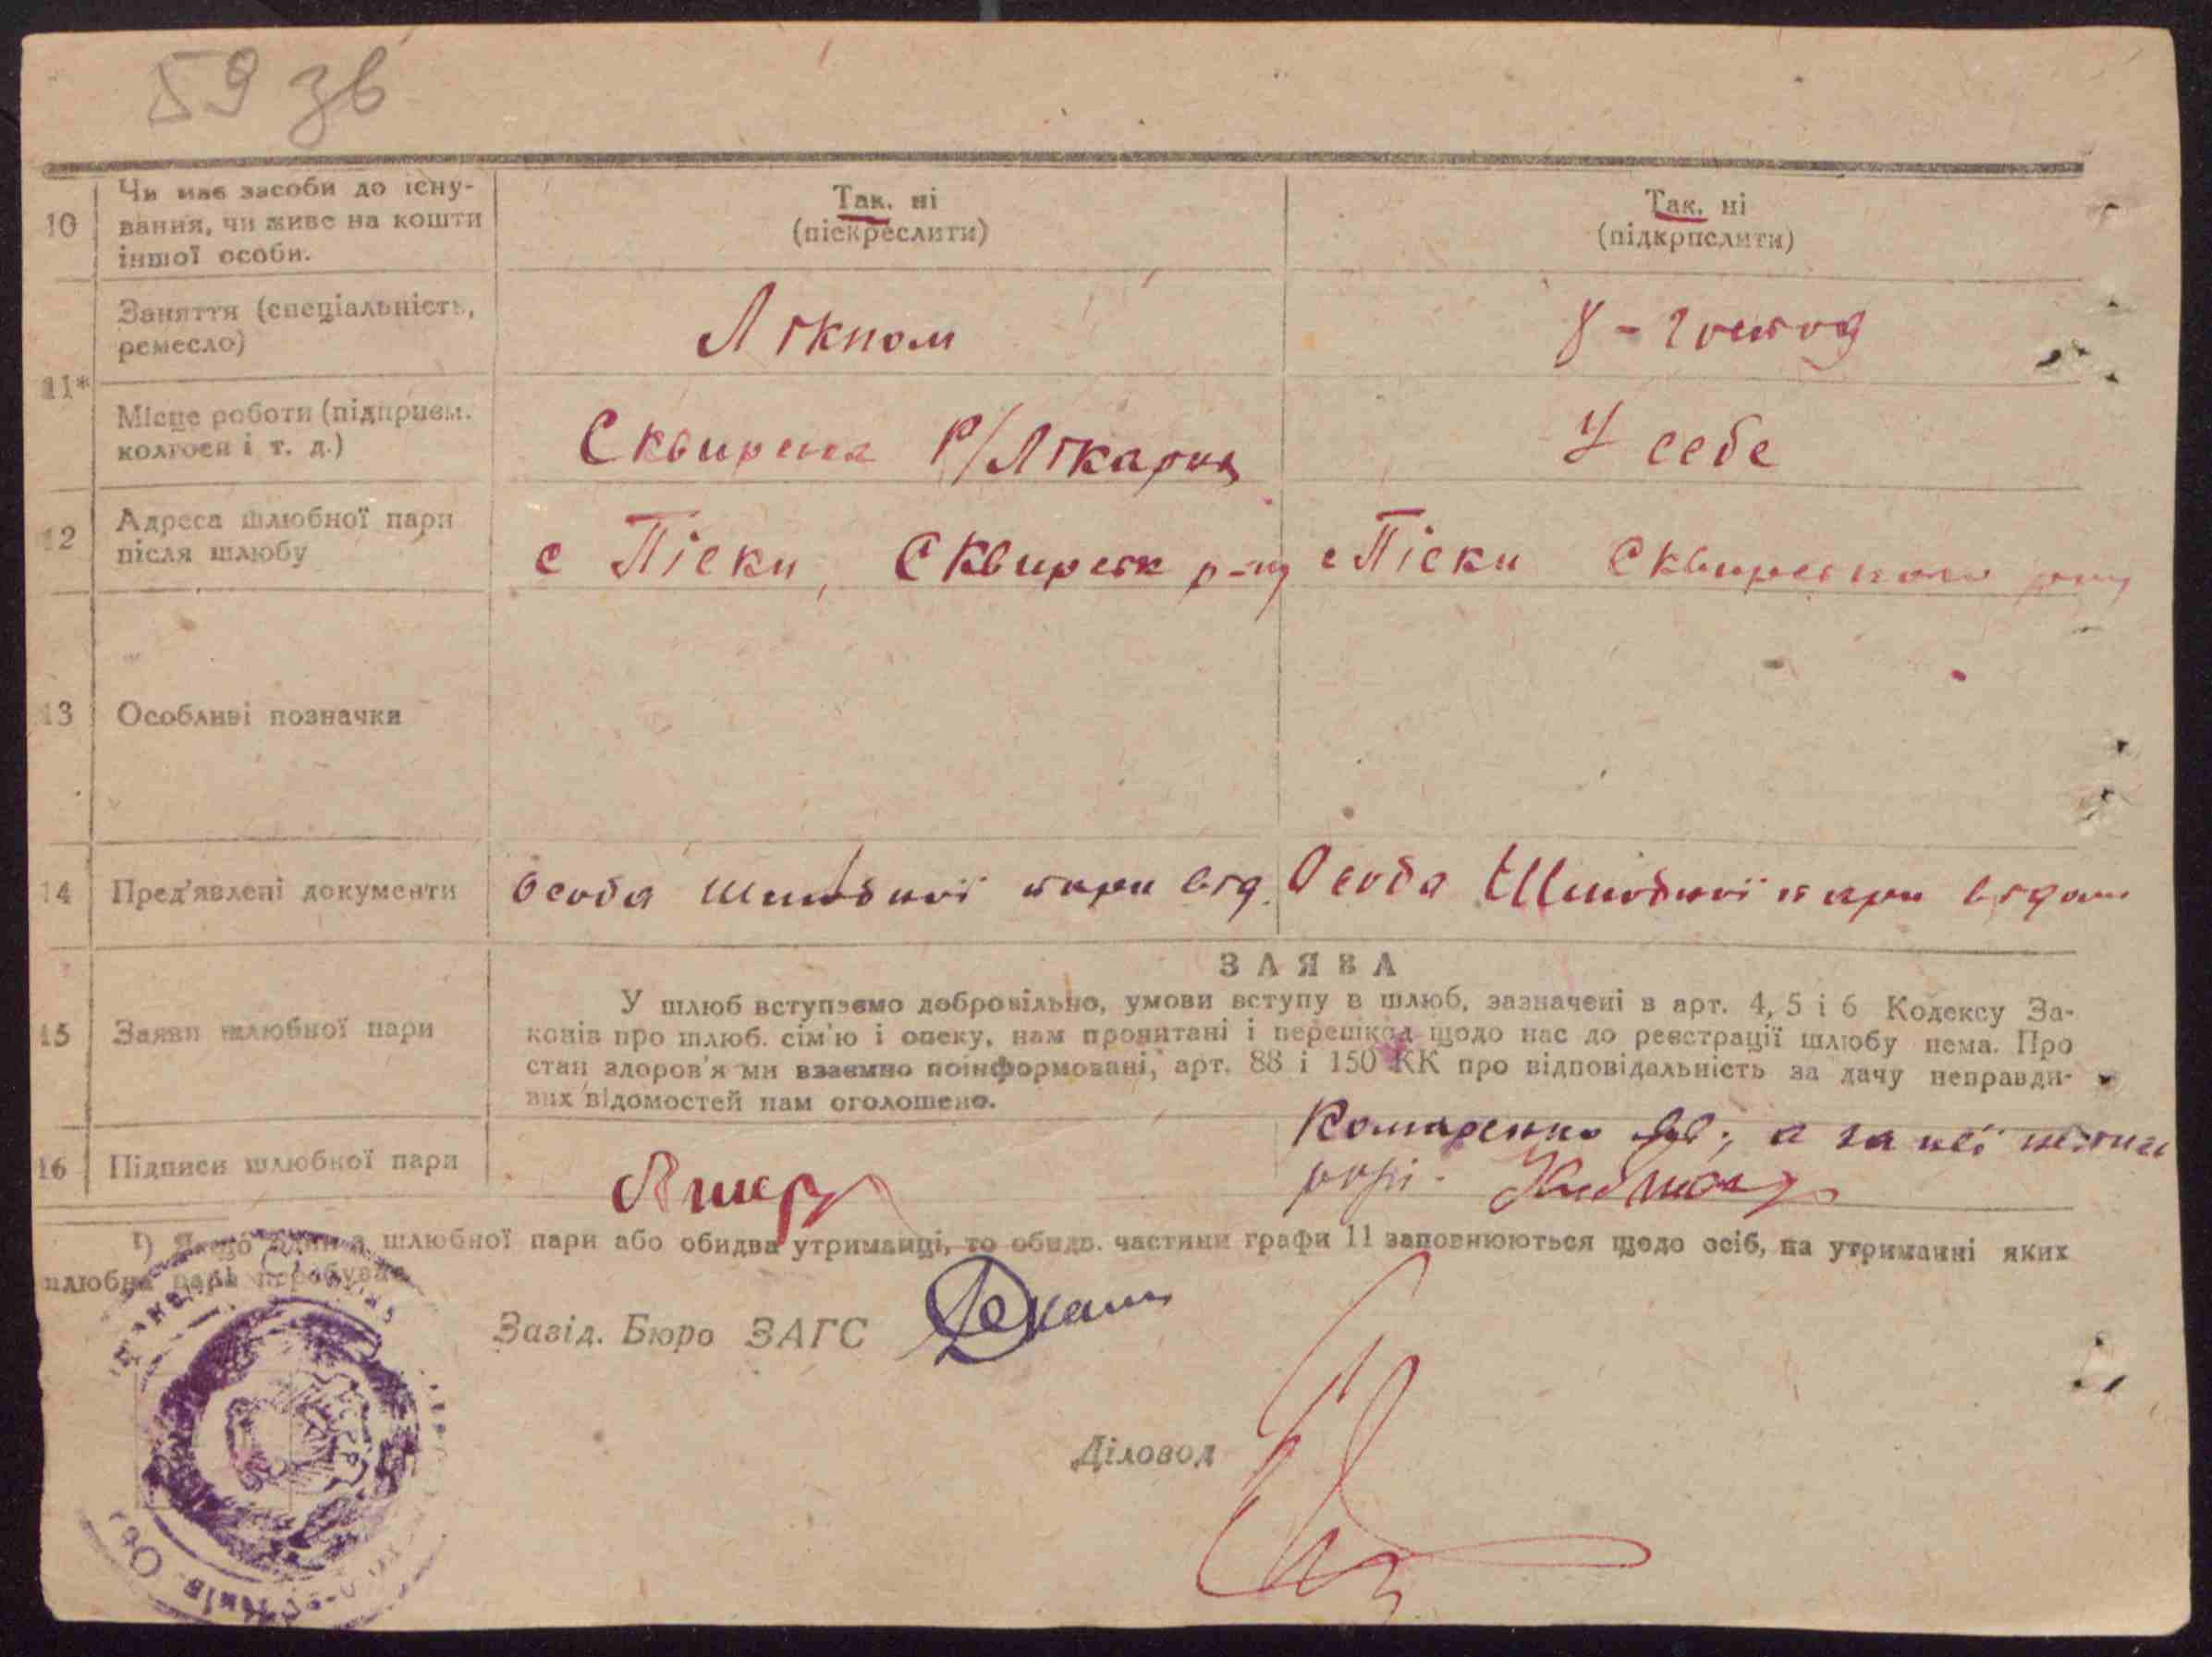 59 зв
10
Чи має засоби до існу-
вання, чи живе на кошти
іншої особи.
Так, ні
(піскреслити)
Так, ні
(підкрпслити)
11*
Заняття (спеціальність,
ремесло)
Лікпом
Місце роботи (підприєм.
колгосп і т. д.)
Сквирська Р/Лікарня
У себе
12
Адреса шлюбної пари
після шлюбу
с Піски, Сквирськ р-ну
с Піски Сквирського р-ну
13
Особливі позначки
14
Пред'явлені документи
Особа Шлюбної пари від.
Особа Шлюбної пари відома
15
Заяви шлюбної пари
ЗАЯВА
У шлюб вступаємо добровільно, умови вступу в шлюб, зазначені в арт. 4, 5 і 6 Кодексу За-
конів про шлюб. сім'ю і опеку, нам прочитані і перешкод щодо нас до реєстрації шлюбу нема. Про
стан здоров'я ми взаємно поінформовані, арт. 88 і 150 КК про відповідальність за дачу неправди-
вих відомостей нам оголошено.
16
Підписи шлюбної пари
а за неї
¹) Якщо один з шлюбної пари або обидва утриманці, то обидв. частини графи 11 заповнюються щодо осіб, на утриманні яких
шлюбна пара перебуває
Завід. Бюро ЗАГС
Діловод